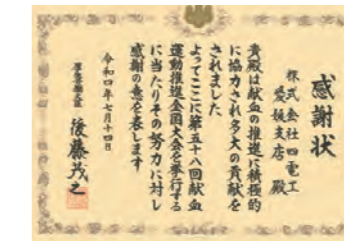 感謝状
株式会社四電工
愛媛支店 殿
貴殿は献血の推進に積極的
に協力され多大の貢献を
されました
よってここに第五十八回献血
運動推進全国大会を挙行する
に当たりその努力に対し
感謝の意を表します
令和四年七月十四日
厚生労働大臣 後藤茂之